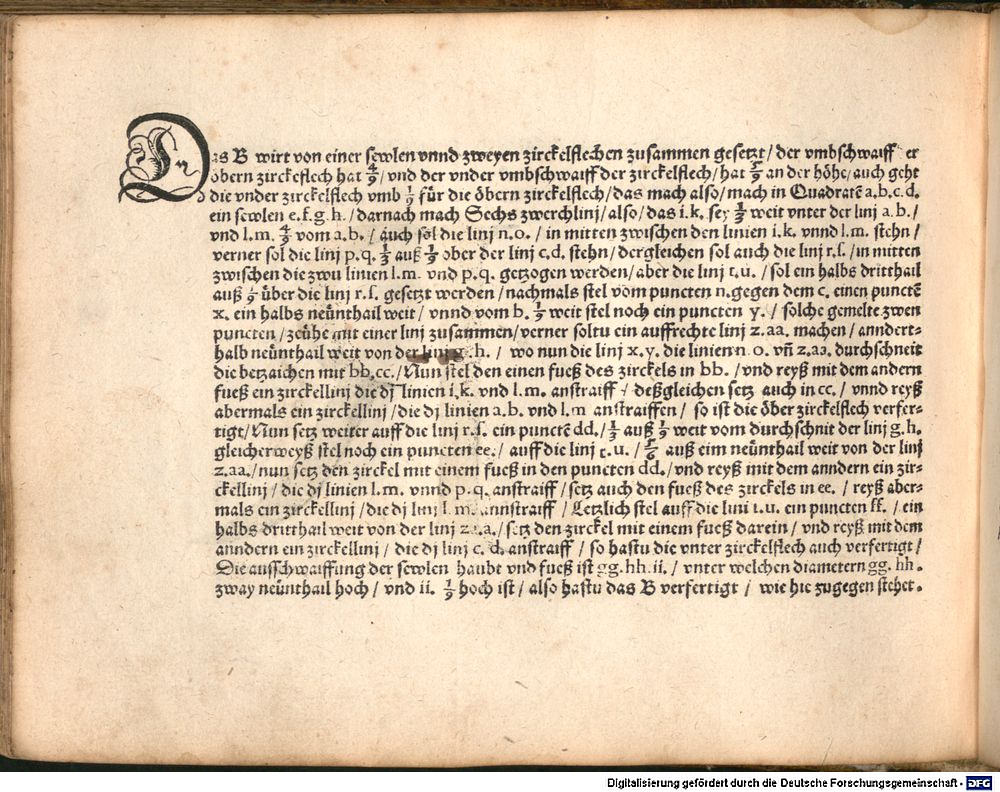 Das B wirt von einer sewlen vnnd zweyen zirckelflechen zusammen gesetzt / der vmbschwaiff er
öbern zirckeflech hat 4/9 / vnd der vnder vmbschwaiff der zirckelflech / hat 5/9 an der höhe / auch geht
die vnder zirckelflech vmb 1/9 für die öbern zirckelflech / das mach also / mach in Quadratē a.b.c.d.
ein sewlen e.f.g.h. / darnach mach Sechs zwerchlinj / also / das i.k. sey weit vnter der linj a.b. /
vnd l.m. 4/9 vom a.b. / auch sol die linj n.o. / in mitten zwischen den linien i.k. vnnd l.m. stehn /
verner sol die linj p.q. 1/3 auß 1/9 ober der linj c.d. stehn / dergleichen sol auch die linj r.s. / in mitten
zwischen die zwu linien l.m. vnd p.q. getzogen werden / aber die linj t.u. / sol ein halbs dritthail
auß 1/9 über die linj r.s. gesetzt werden / nachmals stel vom puncten n. gegen dem c. einen punctē
x. ein halbs neünthail weit / vnnd vom b. 1/9 weit stel noch ein puncten y. / solche gemelte zwen
puncten / zeühe mit einer linj zusammen / verner soltu ein auffrechte linj z.aa. machen / anndert-
halb neünthail weit von der linj g.h. / wo nun die linj x.y. die linien n.o. vn̄ z.aa. durchschneit
die betzaichen mit bb.cc. / Nun stel den einen fueß des zirckels in bb. / vnd reyß mit dem andern
fueß ein zirckellini die dj linien i.k. vnd l.m. anstraiff / deßgleichen setz auch in cc. / vnnd reyß
abermals ein zirckellinj / die dj linien a.b. vnd l.m anstraiffen / so ist die öber zirckelflech verfer-
tigt / Nun setz weiter auff die linj r.s. ein punctē dd. / 1/3 auß 1/9 weit vom durchschnit der linj g.h.
gleicherweyß stel noch ein puncten ee. / auff die linj t.u. / auß eim neünthail weit von der linj
z.aa. / nun setz den zirckel mit einem fueß in den puncten dd. / vnd reyß mit dem anndern ein zir-
ckellinj / die dj linien l.m. vnnd p.q. anstraiff / setz auch den fueß des zirckels in ee. / reyß aber-
mals ein zirckellinj / die dj linj l.m. annstraiff / Letzlich stel auff die lini t.u. ein puncten ff. / ein
halbs dritthail weit von der linj z.a.a. / setz den zirckel mit einem fueß darein / vnd reyß mit dem
anndern ein zirckellinj / die dj linj c.d. anstraiff / so hastu die vnter zirckelflech auch verfertigt /
Die ausschwaiffung der sewlen haubt vnd fueß ist gg.hh.ii. / vnter welchen diametern gg. hh.
zway neünthail hoch / vnd ii. 1/9 hoch ist / also hastu das B verfertigt / wie hie zugegen stehet.
Digitalisierung gefördert durch die Deutsche Forschungsgemeinschaft - DFG